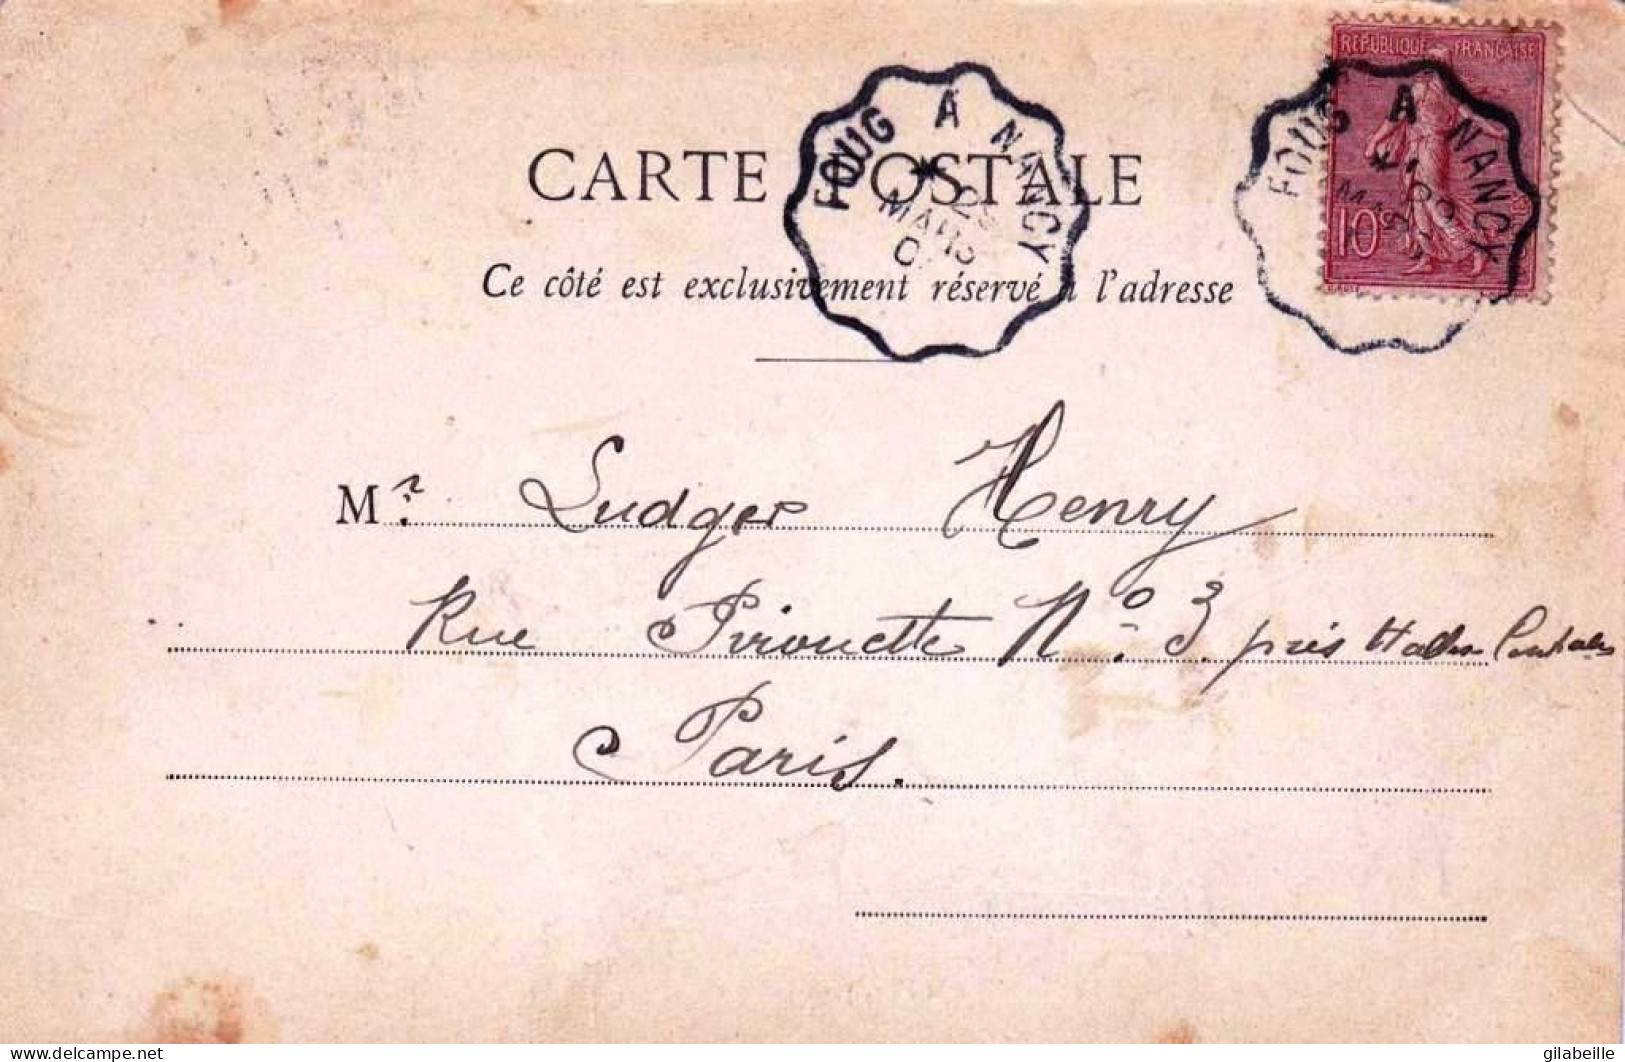 RÉPUBLIQUE FRANÇAISE
10c
FOUG A NANCY
MARS
FOUG A NANCY
CARTE POSTALE
Ce côté est exclusivement réservé à l'adresse
Mr. Ludger Henry
Rue Pirouette No. 3. près Halles Centrales
Paris.
gilabeille